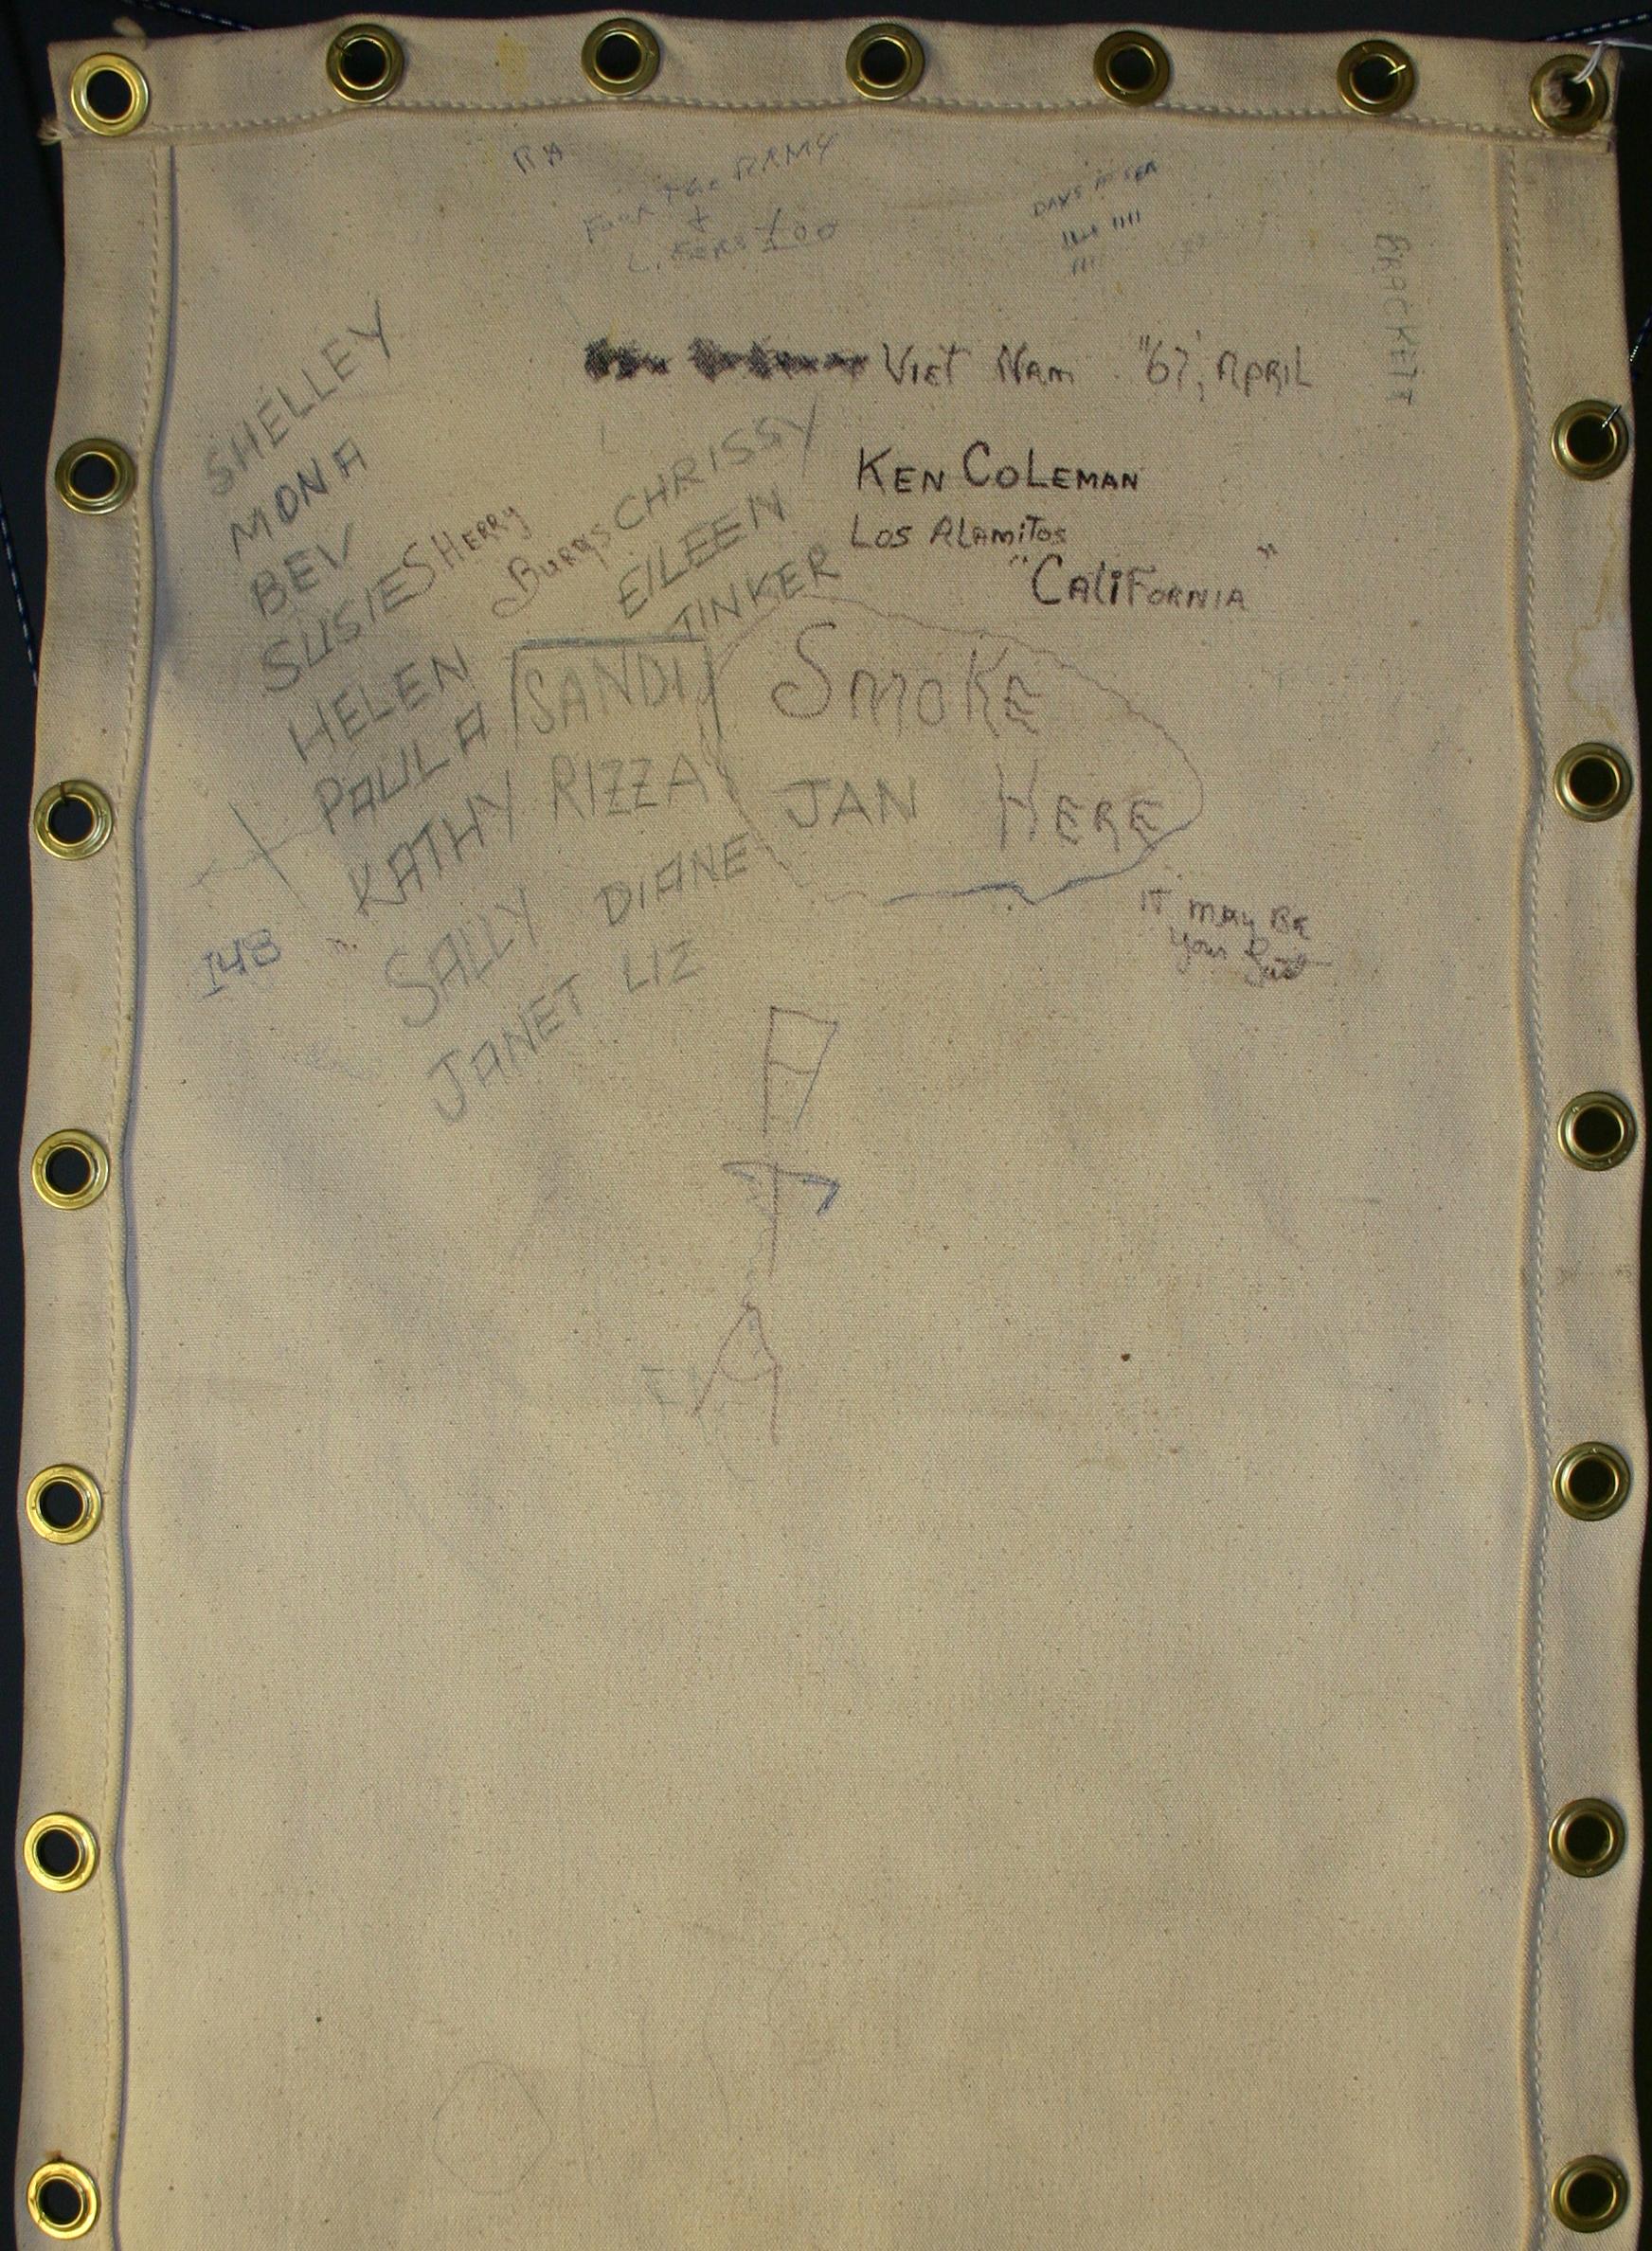 RA
the ARMY
+
Lifers too
DAYS AT SEA
BRACKETT
Viet Nam "67, APRIL
KEN COLEMAN
LOS ALAMITOS
"CALIFORNIA"
SHELLEY
MONA
BEV
SUSIE SHERRY
HELEN
PAULA
KATHY
SALLY
JANET
CHRISSY
EILEEN
TINKER
SANDI
RIZZA
DIANE
LIZ
SMOKE
JAN HERE
IT may BE
your last
148